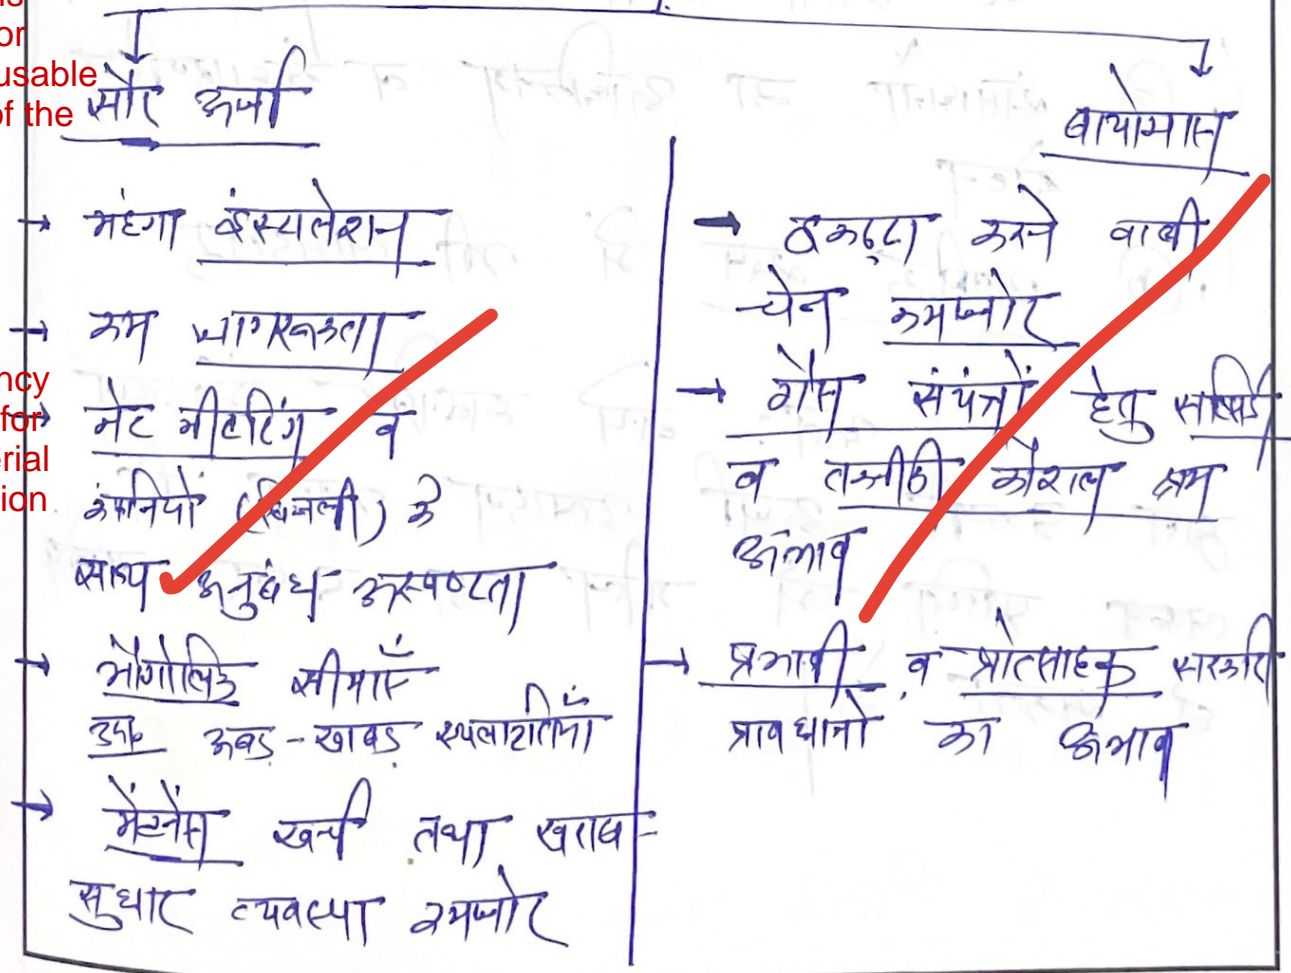 is
or
usable
of the
ncy
for
erial
ion
सौर ऊर्जा
→ मंहगा इंस्टालेशन
→ कम जागरूकता
→ नेट मीटरिंग व
कंपनियों (बिजली) के
साथ अनुबंध अस्पष्टता
→ भौगोलिक सीमाएँ
उदा० ऊबड़-खाबड़ स्थलाकृतियाँ
→ मेंटनेंस खर्च तथा खराब
सुधार व्यवस्था कमजोर
बायोमास
→ इकट्ठा करने वाली
चेन कमजोर
→ गैस संयंत्रों हेतु सब्सिडी
व तकनीकी कौशल श्रम
अभाव
→ प्रभावी व प्रोत्साहक सरकारी
प्रावधानों का अभाव